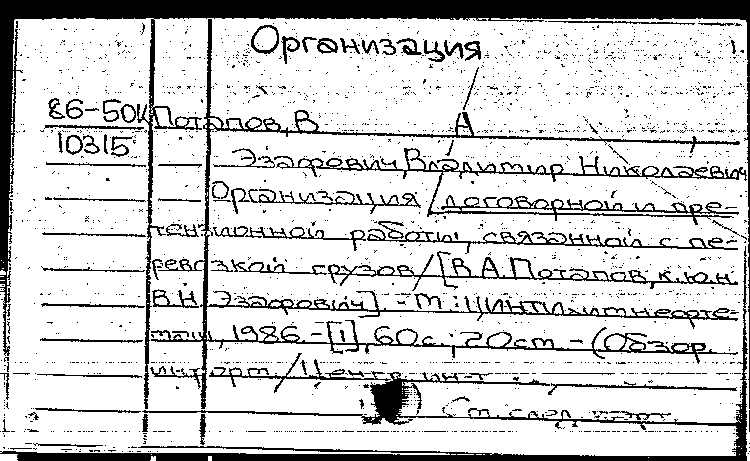 Организация
86-50К Потапов, В А
10315
Эзафович, Владимир Николаевич
Организация / договорной и пре-
тензионной работы, связанной с пе-
ревозкой грузов / [В.А. Потапов, к.ю.н.
В.Н. Эзафович]. - М.: ЦИНТИхимнефте-
маш, 1986. - [1], 60 с.; 20 см. - (Обзор.
информ. / Центр. ин-т
См. след. карт.